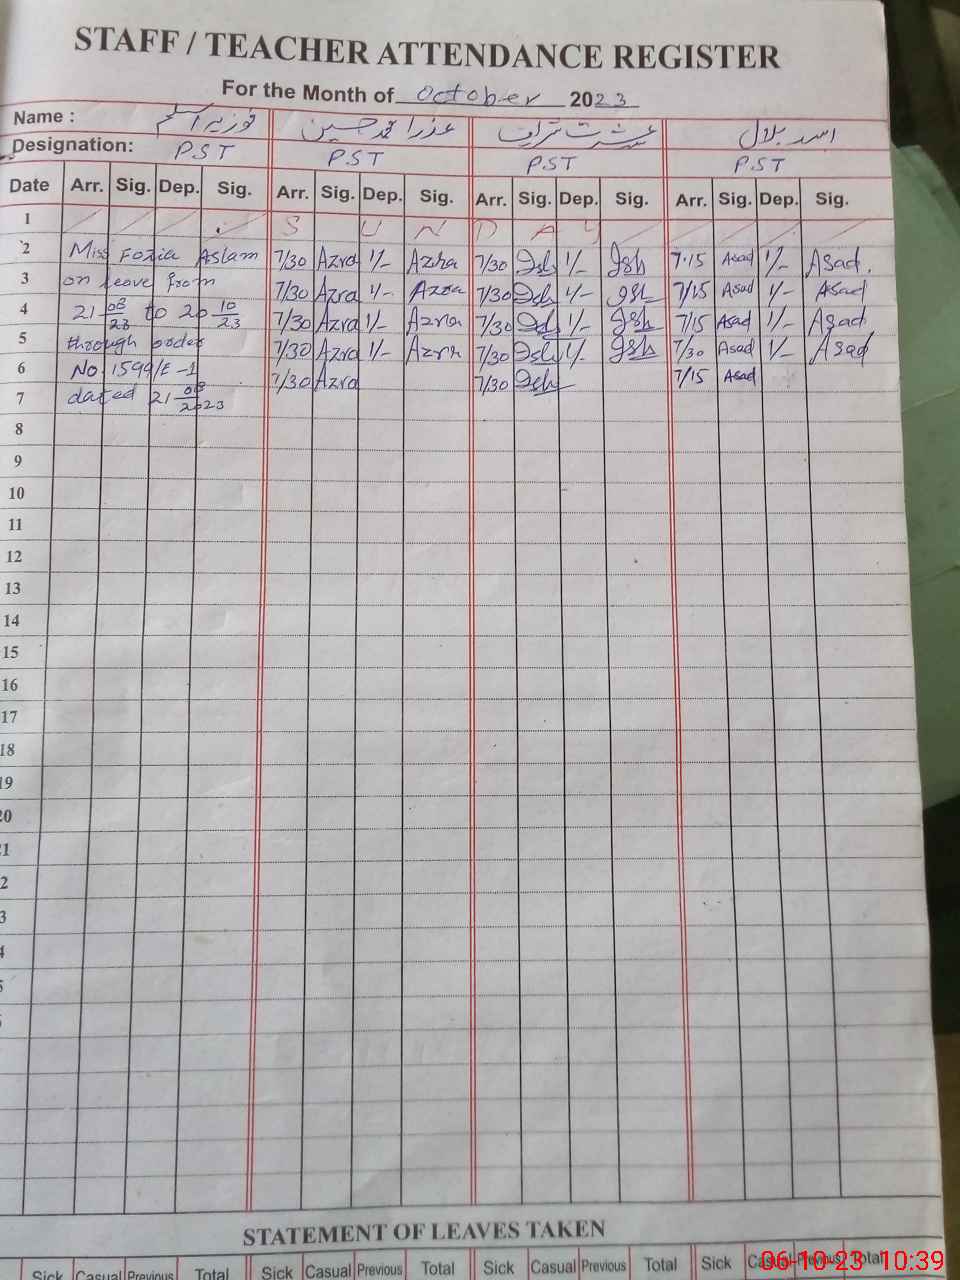 STAFF / TEACHER ATTENDANCE REGISTER
For the Month of October 2023
Name : فوزیہ اسلم عذرا محمد حسین عشرت اسد بلال
Designation: P.S.T P.S.T P.S.T P.S.T
Date Arr. Sig. Dep. Sig. Arr. Sig. Dep. Sig. Arr. Sig. Dep. Sig. Arr. Sig. Dep. Sig.
1 S U N D A Y
2 Miss Fozia Aslam 7/30 Azra 1/- Azra 7/30 Ish 1/- Ish 7.15 Asad 1/- Asad.
3 on leave from 7/30 Azra 1/- Azra 7/30 Ish 1/- Ish 7/15 Asad 1/- Asad
4 21 08/23 to 20 10/23 7/30 Azra 1/- Azra 7/30 Ish 1/- Ish 7/15 Asad 1/- Asad
5 through order 7/30 Azra 1/- Azra 7/30 Ish 1/- Ish 7/30 Asad 1/- Asad
6 No 1599/E-1 7/30 Azra 7/30 Ish 7/15 Asad
7 dated 21 08/2023
8
9
10
11
12
13
14
15
16
17
18
19
20
1
2
3
4
5
STATEMENT OF LEAVES TAKEN
Sick Casual Previous Total Sick Casual Previous Total Sick Casual Previous Total Sick Casual Previous Total
06-10-23 10:39